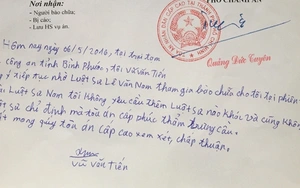 Nơi nhận:
- Người bào chữa;
- Bị cáo;
- Lưu HS vụ án.
PHÓ CHÁNH ÁN
Quảng Đức Tuyên
Hôm nay ngày 06/5/2016, tại trại tạm
công an tỉnh Bình Phước, tôi Vũ Văn Tiến
tiếp tục nhờ Luật sư Lê Văn Nam tham gia bào chữa cho tôi tại phiên
Luật sư Nam tôi không yêu cầu thêm Luật sư nào khác và cũng không
Luật sư chỉ định mà tòa án cấp phúc thẩm
mong quý tòa án cấp cao xem xét, chấp thuận.
Vũ Văn Tiến